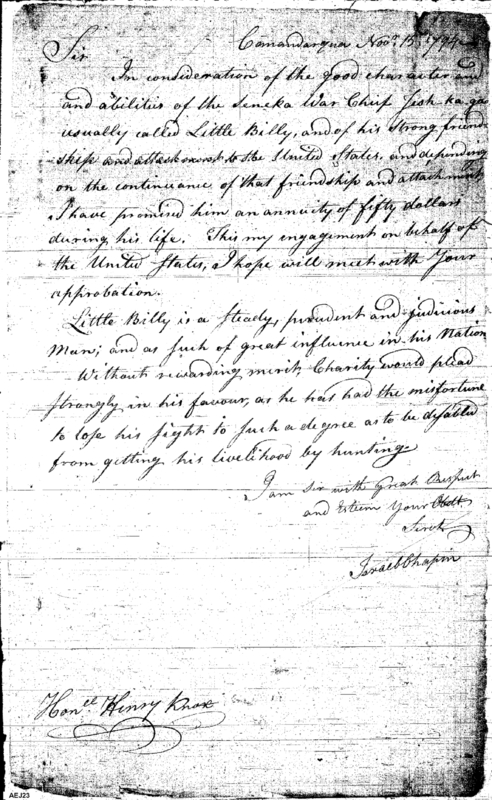 Canandarqua Novr. 15. 1794
Sir
In consideration of the good character and
and abilities of the Seneka War Chief Jish-ka-ga
usually called Little Billy, and of his strong friend-
ship and attachment to the United States, and depending
on the continuance of that friendship and attachment
I have promised him an annuity of fifty dollars
during his life. This my engagement on behalf of
the United States, I hope will meet with Your
approbation.
Little Billy is a steady, prudent and judicious
Man; and as such of great influence in his Nation
Without rewarding merit, Charity would plead
strongly in his favour, as he has had the misfortune
to lose his sight to such a degree as to be disabled
from getting his livelihood by hunting.
I am Sir with great Respect
and Esteem Your Obdt.
Servt
Israel Chapin
Honble Henry Knox
AEJ23